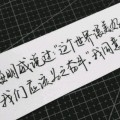 明威说过"这个世界很美好
我们应该为之奋斗，我同意